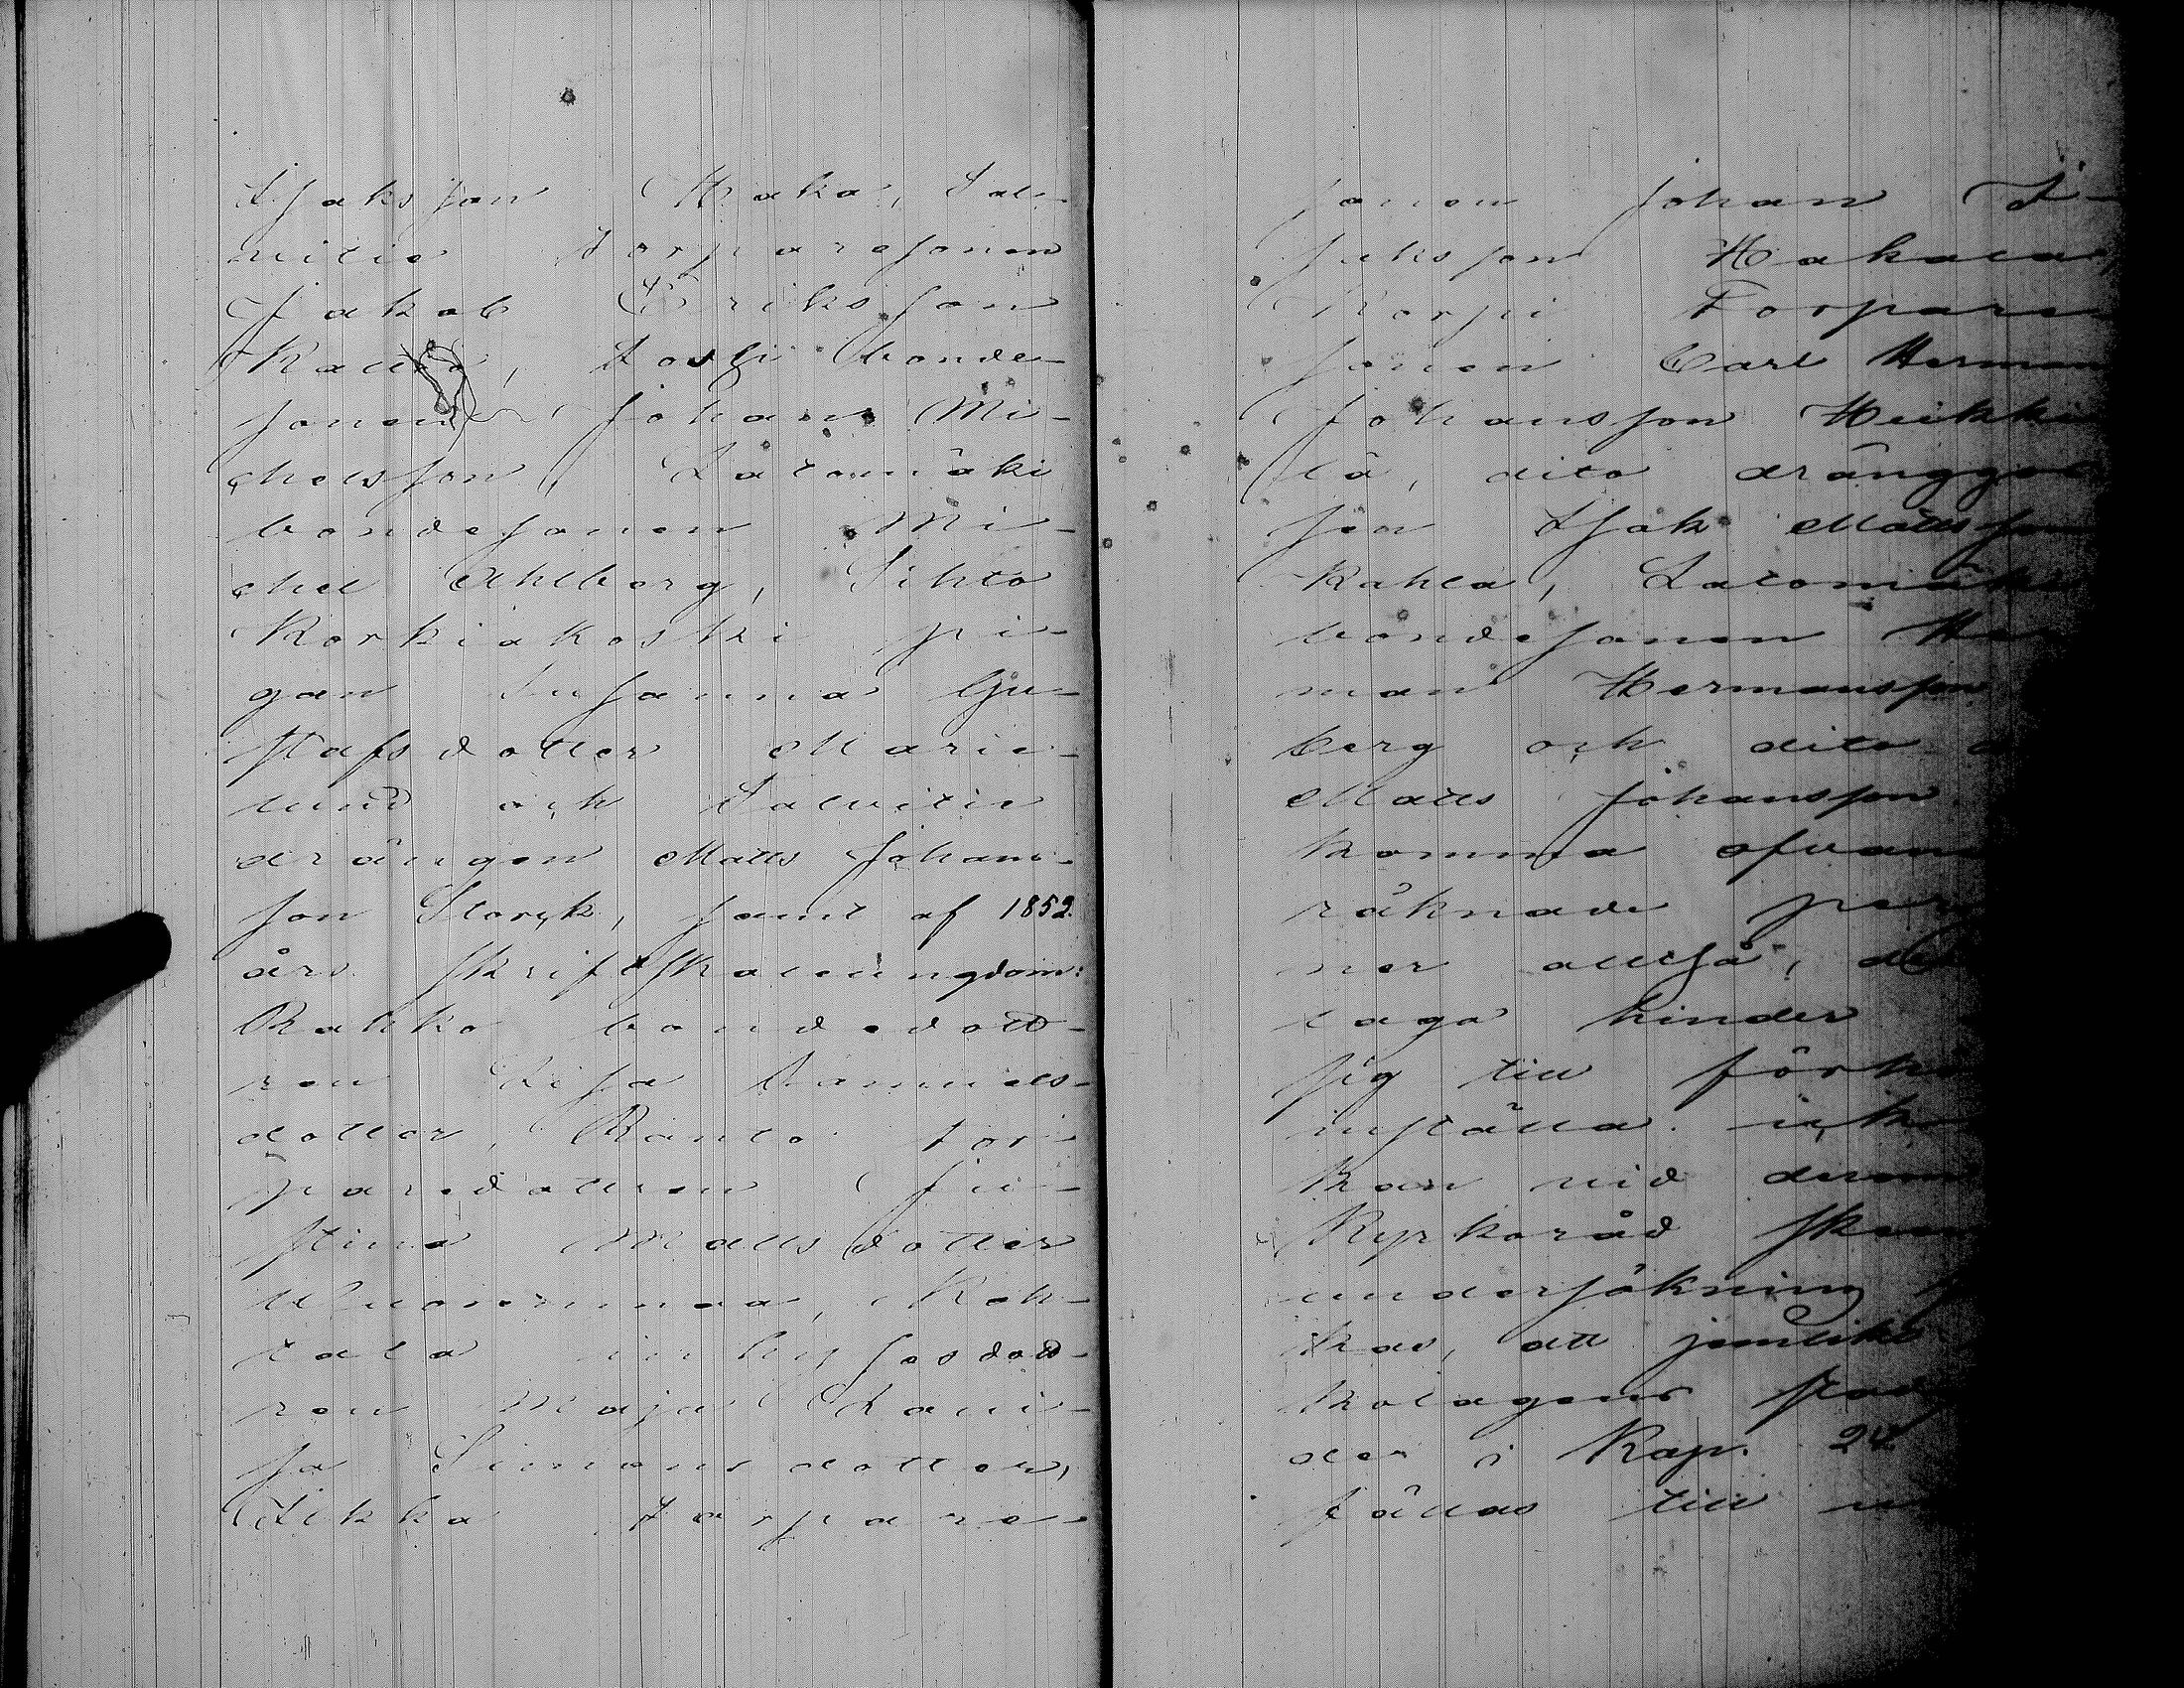 Isaksson Haka, Sal-
vitie torparesonen
Jakob Eriksson
Kallio, Koski bonde-
sonen Johan Mi-
chelsson, Latomäki
bondesonen Mi-
chel Ahlberg, Sihto
Korkiakoski pi-
gan Susanna Gu-
stafsdotter Marie-
lund och Salvitie
drängen Matts Johans-
son Storck, samt af 1852
års skriftskaleungdom:
Rahko bondedott-
ren Lisa Samuels-
dotter, Ranto tor-
paredottren Ju-
stina Mattsdotter
Vuorenmaa, Koh-
tala inhysesdott-
ren Maja Lovi-
sa Simonsdotter,
Ilkka torpare-
sonen Johan I-
saksson Hakala,
Korpi torpare
sonen Carl Herman
Johansson Heikki
lä, dito dränggos
sen Isak Mattsson
Kahla, Latomäki
bondesonen Her
man Hermansson
berg och dito
Matts Johansson
komma ofvan
räknade per
ner alltså, der
laga hinder
sig till förhör
inställa. icke
kan vid derom
Kyrkoråd skeen
undersökning
kas, att jemlikt
kolagens stad
der i Kap. 24
fällas till